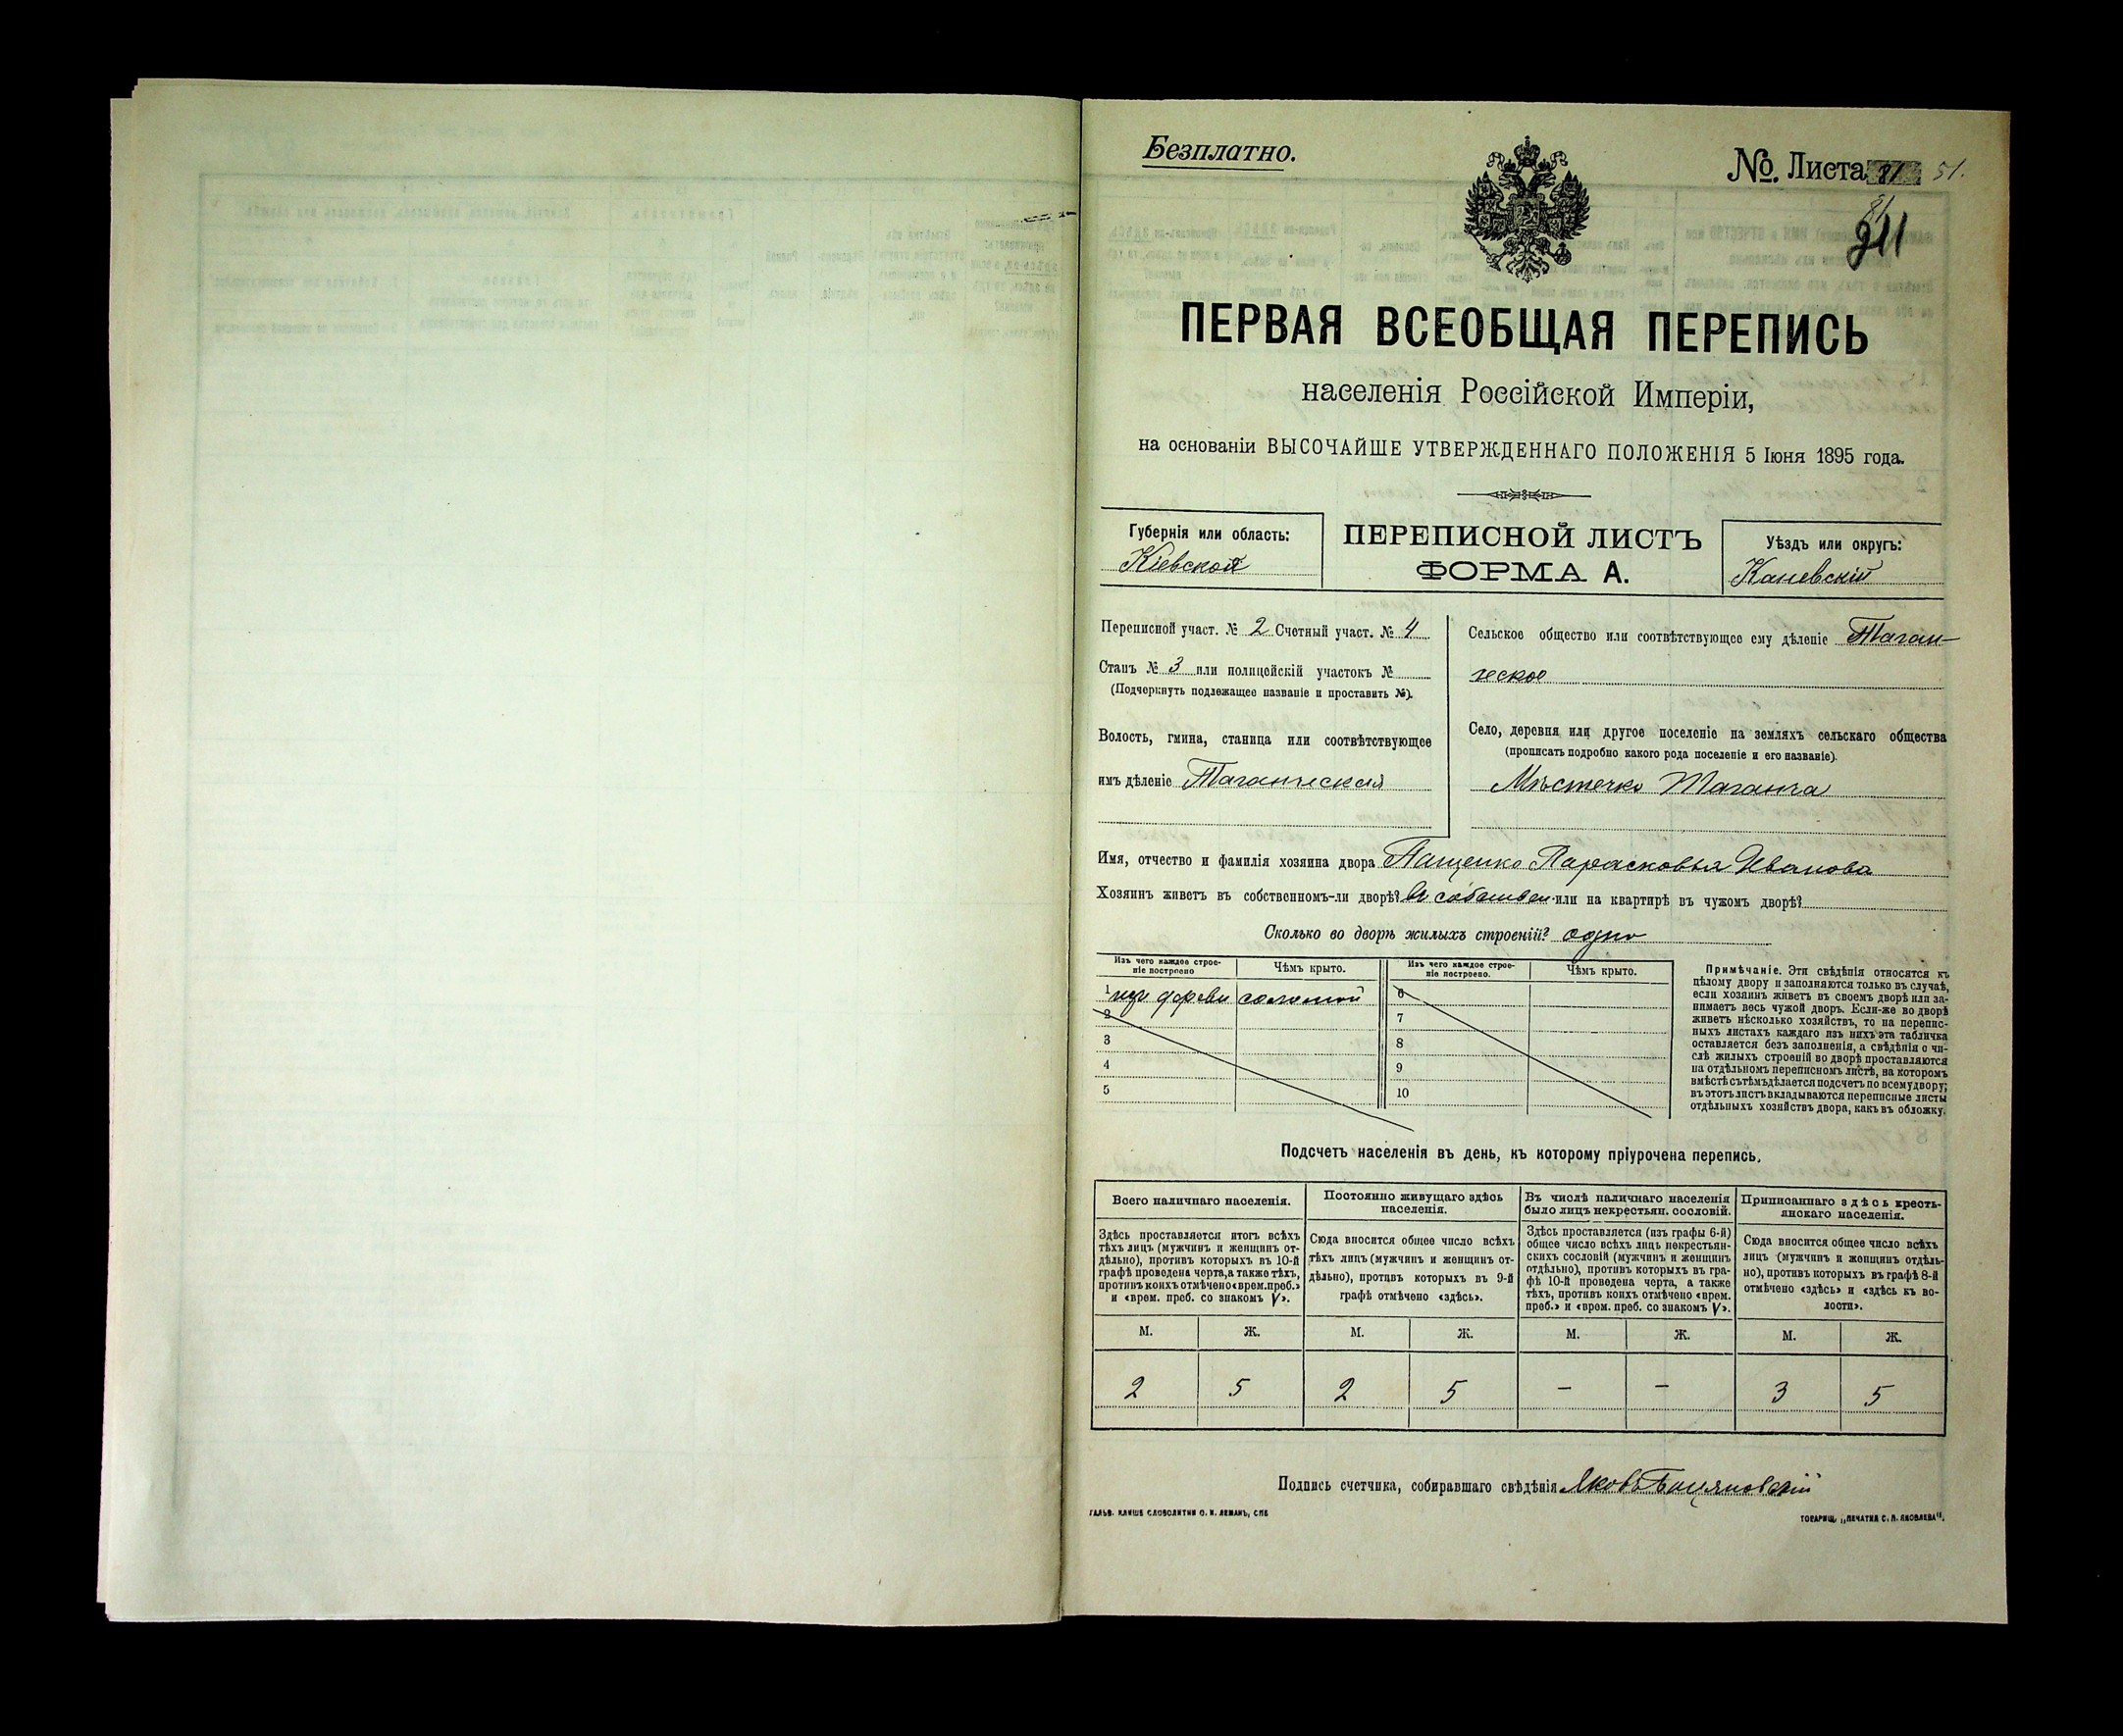 Безплатно.
№. Листа 81 51.
81
ПЕРВАЯ ВСЕОБЩАЯ ПЕРЕПИСЬ
населенія Россійской Имперіи,
на основаніи ВЫСОЧАЙШЕ УТВЕРЖДЕННАГО ПОЛОЖЕНІЯ 5 Іюня 1895 года.
Губернія или область:
Кіевской
ПЕРЕПИСНОЙ ЛИСТЪ
ФОРМА А.
Уѣздъ или округъ:
Каневскій
Переписной участ. № 2 Счетный участ. № 4
Станъ № 3 или полицейскій участокъ №
(Подчеркнуть подлежащее названіе и проставить №).
Волость, гмина, станица или соотвѣтствующее
имъ дѣленіе Таганческая
Сельское общество или соотвѣтствующее ему дѣленіе Таган-
ческое
Село, деревня или другое поселеніе на земляхъ сельскаго общества
(прописать подробно какого рода поселеніе и его названіе).
Мѣстечко Таганча
Имя, отчество и фамилія хозяина двора Пащенко Парасковья Иванова
Хозяинъ живетъ въ собственномъ-ли дворѣ? въ собствен. или на квартирѣ въ чужомъ дворѣ?
Сколько во дворѣ жилыхъ строеній? одно
Изъ чего каждое строе-
ніе построено
Чѣмъ крыто.
Изъ чего каждое строе-
ніе построено.
Чѣмъ крыто.
1 изъ дереви соломой
2
3
4
5
6
7
8
9
10
Примѣчаніе. Эти свѣдѣнія относятся къ
цѣлому двору и заполняются только въ случаѣ,
если хозяинъ живетъ въ своемъ дворѣ или за-
нимаетъ весь чужой дворъ. Если-же во дворѣ
живетъ нѣсколько хозяйствъ, то на перепис-
ныхъ листахъ каждаго изъ нихъ эта табличка
оставляется безъ заполненія, а свѣдѣнія о чи-
слѣ жилыхъ строеній во дворѣ проставляются
на отдѣльномъ переписномъ листѣ, на которомъ
вмѣстѣ съ тѣмъ дѣлается подсчетъ по всему двору;
въ этотъ листъ вкладываются переписные листы
отдѣльныхъ хозяйствъ двора, какъ въ обложку.
Подсчетъ населенія въ день, къ которому пріурочена перепись.
Всего наличнаго населенія.
Здѣсь проставляется итогъ всѣхъ
тѣхъ лицъ (мужчинъ и женщинъ от-
дѣльно), противъ которыхъ въ 10-й
графѣ проведена черта, а также тѣхъ,
противъ коихъ отмѣчено «врем. преб.»
и «врем. преб. со знакомъ V».
Постоянно живущаго здѣсь
населенія.
Сюда вносится общее число всѣхъ
тѣхъ лицъ (мужчинъ и женщинъ от-
дѣльно), противъ которыхъ въ 9-й
графѣ отмѣчено «здѣсь».
Въ числѣ наличнаго населенія
было лицъ некрестьян. сословій.
Здѣсь проставляется (изъ графы 6-й)
общее число всѣхъ лицъ некрестьян-
скихъ сословій (мужчинъ и женщинъ
отдѣльно), противъ которыхъ въ гра-
фѣ 10-й проведена черта, а также
тѣхъ, противъ коихъ отмѣчено «врем.
преб.» и «врем. преб. со знакомъ V».
Приписаннаго здѣсь кресть-
янскаго населенія.
Сюда вносится общее число всѣхъ
лицъ (мужчинъ и женщинъ отдѣль-
но), противъ которыхъ въ графѣ 8-й
отмѣчено «здѣсь» и «здѣсь къ во-
лости».
М. Ж. М. Ж. М. Ж. М. Ж.
2 5 2 5 — — 3 5
Подпись счетчика, собиравшаго свѣдѣнія Яковъ
ГАЛЬВ. КЛИШЕ СЛОВОЛИТНИ О. И. ЛЕМАНЪ, СПБ
ТОВАРИЩ. „ПЕЧАТНЯ С. П. ЯКОВЛЕВА".